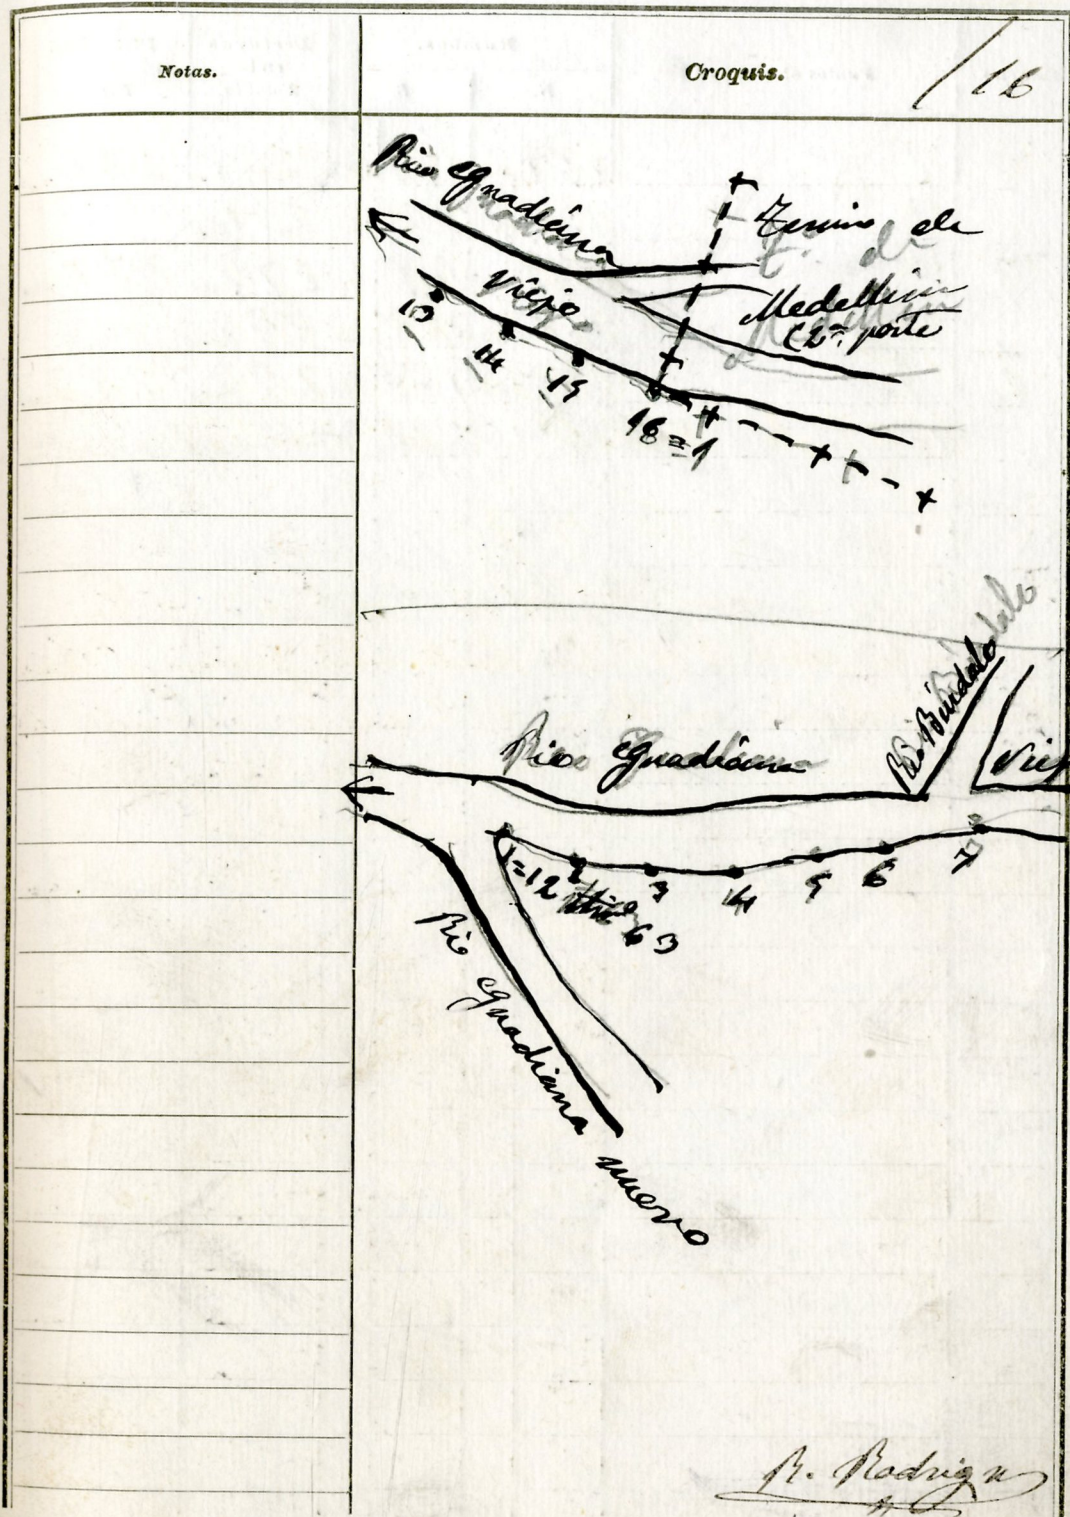 Notas.
Croquis.
/16
Rio Guadiana
Viejo
Termino de
T. de
Medellin
(2ª parte
13
14
15
16=1
Rio Búrdalo
Rio Guadiana
Viej
1=12
63
2
3
4
5
6
7
Rio Guadiana nuevo
R. Rodrigu